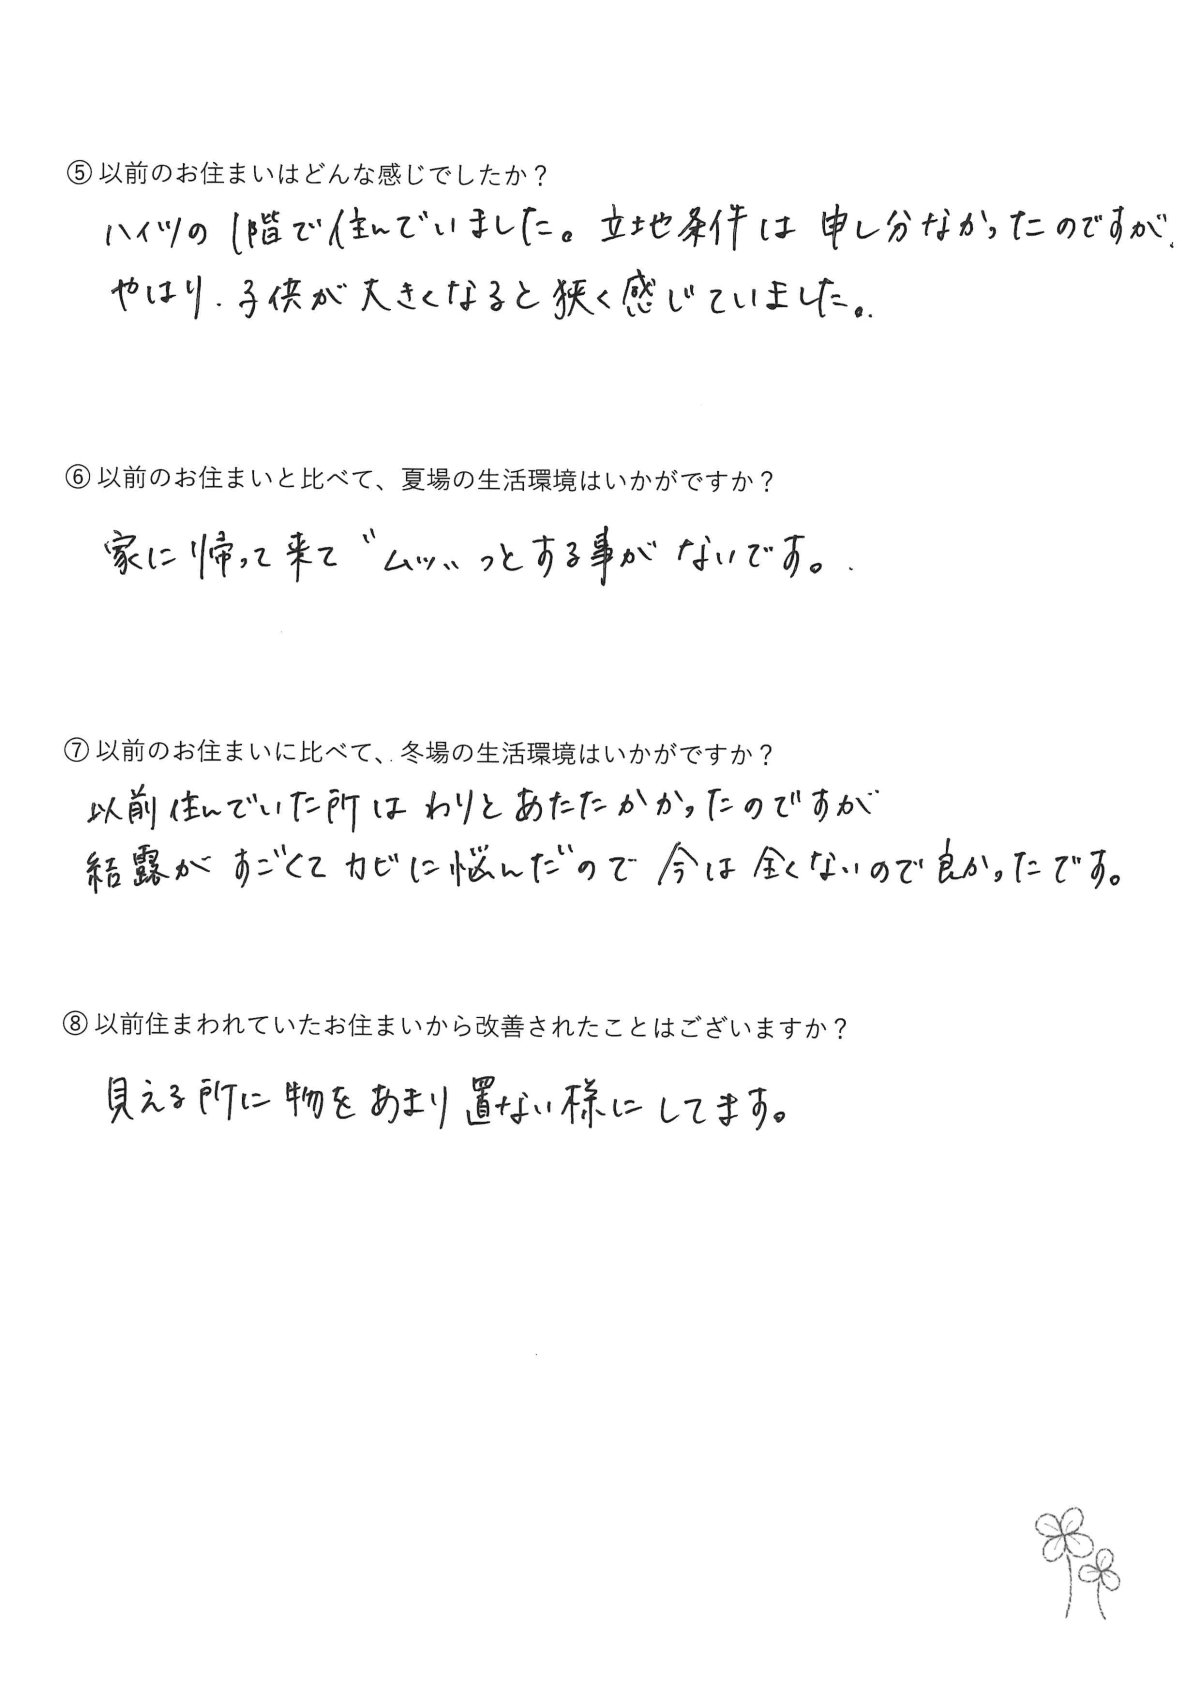 ⑤以前のお住まいはどんな感じでしたか？
ハイツの1階で住んでいました。立地条件は申し分なかったのですが、
やはり、子供が大きくなると狭く感じていました。
⑥以前のお住まいと比べて、夏場の生活環境はいかがですか？
家に帰って来て〝ムッ〟っとする事がないです。
⑦以前のお住まいに比べて、冬場の生活環境はいかがですか？
以前住んでいた所はわりとあたたかかったのですが
結露がすごくてカビに悩んだので今は全くないので良かったです。
⑧以前住まわれていたお住まいから改善されたことはございますか？
見える所に物をあまり置ない様にしてます。